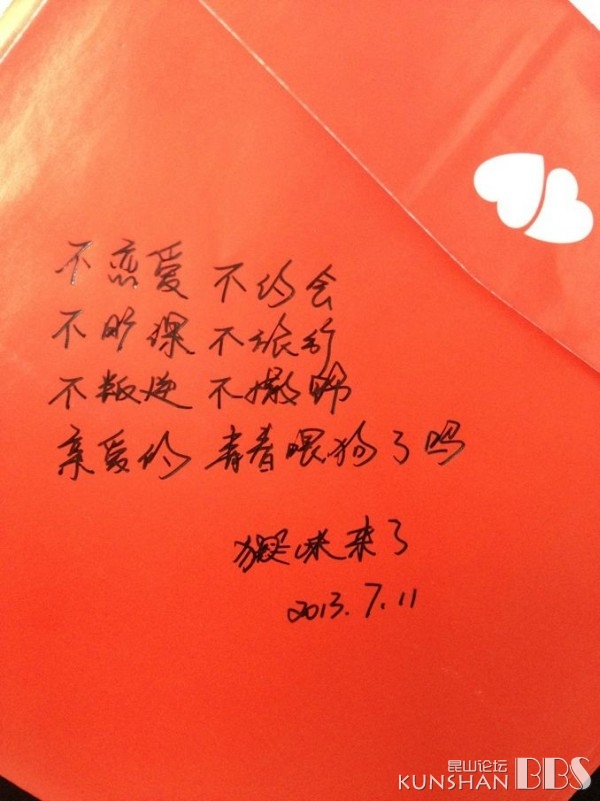 不恋爱 不约会
不旷课 不旅行
不叛逆 不撒野
亲爱的 青春喂狗了吗
来了
2013.7.11
昆山论坛
KUNSHAN BBS